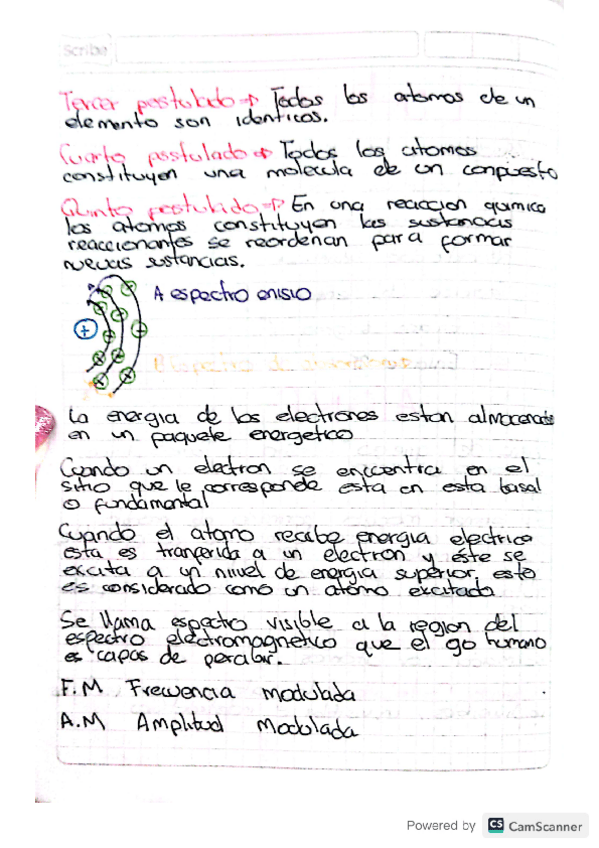 Scribe
Tercer postulado → Todos los atomos de un
elemento son identicos.
Cuarto postulado → Todos los atomos
constituyen una molecula de un conpuesto
Quinto postulado → En una reaccion quimica
los atomos constituyen las sustancias
reaccionantes se reordenan para formar
nuevas sustancias.
A espectro emisio
+
La energia de los electrones estan almacenada
en un paquete energetico
Cuando un electron se encuentra en el
sitio que le corresponde esta en esta basal
o fundamental
Cuando el atomo recibe energia electrica
esta es tranferida a un electron y éste se
excita a un nivel de energia superior, esto
es considerado como un atomo excitado
Se llama espectro visible a la region del
espectro electromagnetico que el ojo humano
es capas de percibir.
F.M Frecuencia modulada
A.M Amplitud Modulada
Powered by CS CamScanner